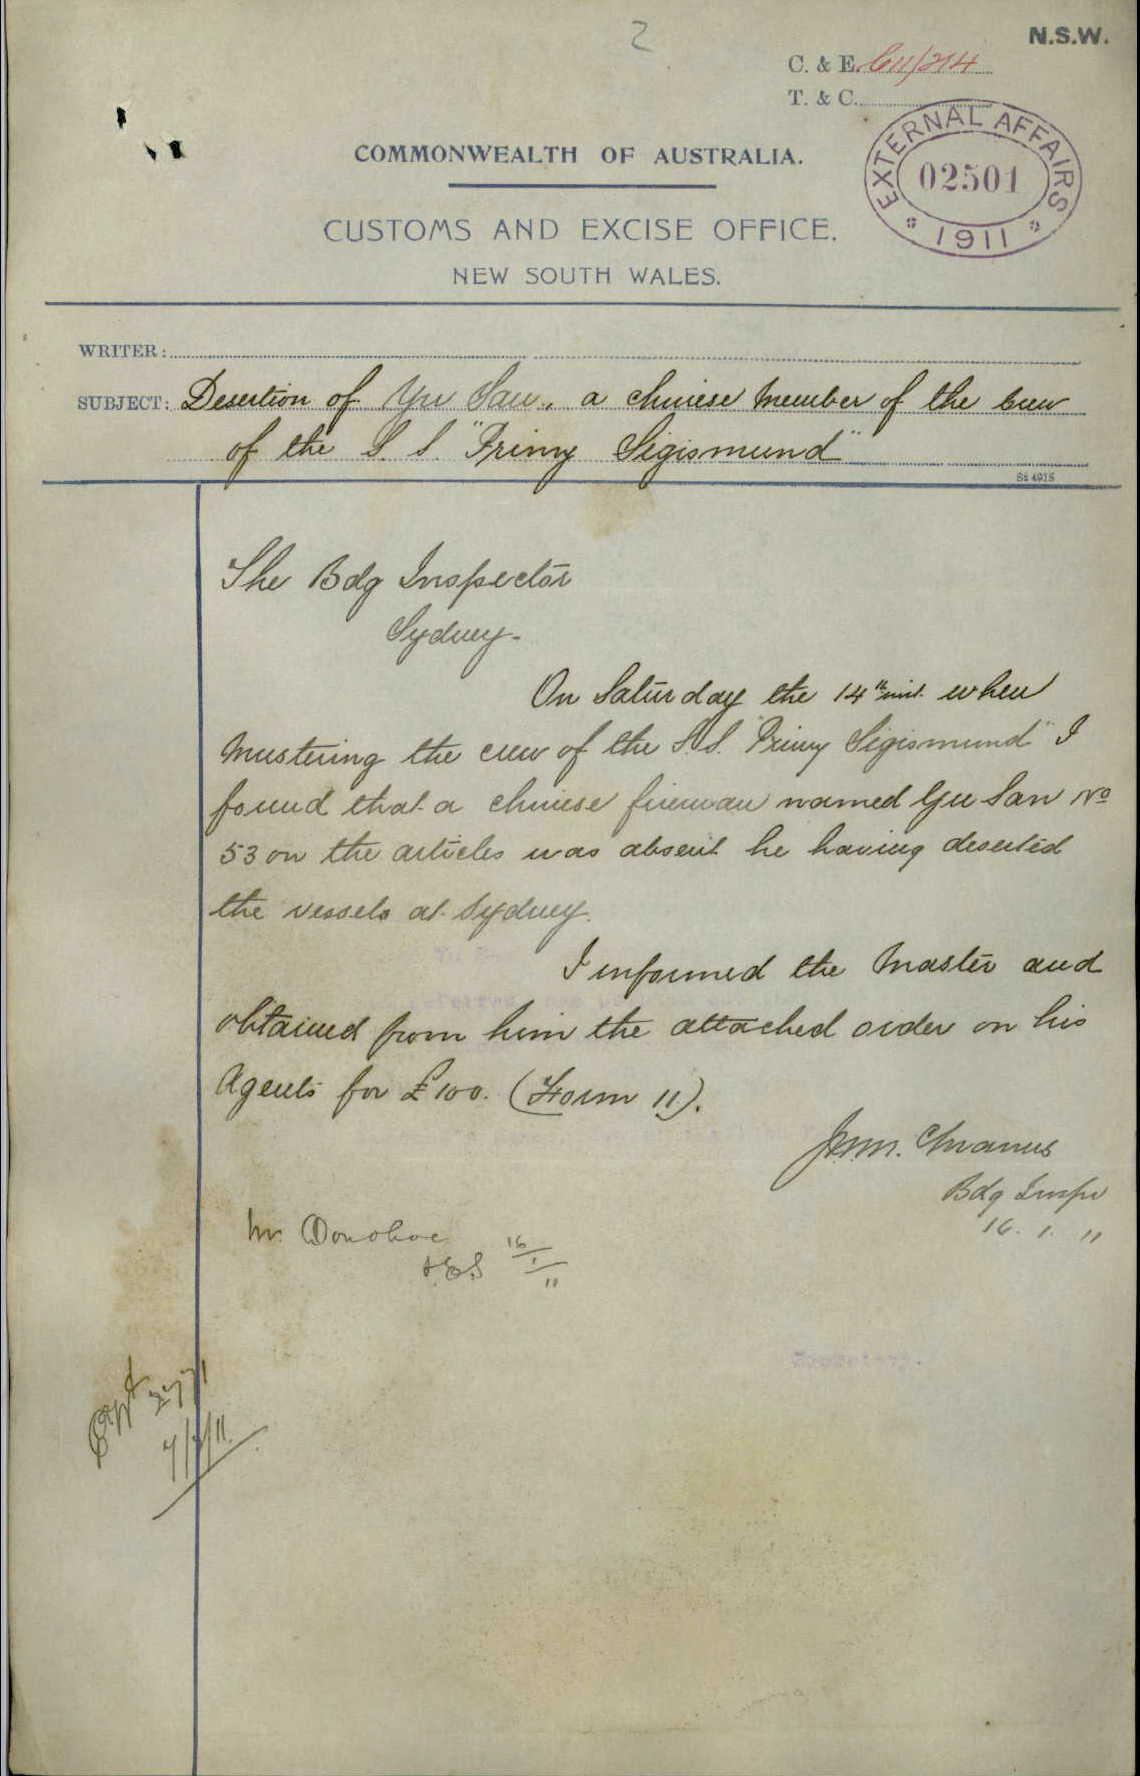 2
N.S.W.
C. & E. C11/214
T. & C.
EXTERNAL AFFAIRS
02501
1911
COMMONWEALTH OF AUSTRALIA.
CUSTOMS AND EXCISE OFFICE.
NEW SOUTH WALES.
WRITER:
SUBJECT: Desertion of Yu San, a chinese Member of the Crew
of the S.S. "Prinz Sigismund"
The Bdg Inspector
Sydney-
On Saturday the 14th inst. when
mustering the crew of the S.S. "Prinz Sigismund" I
found that a chinese fireman named Yu San No
53 on the articles was absent he having deserted
the vessels at Sydney.
I informed the Master and
obtained from him the attached order on his
Agents for £100. (Form 11).
Bdg Inspr
16. 1. 11
Mr. Donohoe
16/1/11
Secretary.